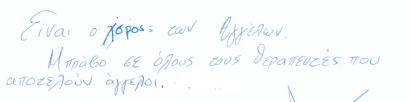 Είναι ο χώρος των Αγγέλων.
Μπράβο σε όλους τους θεραπευτές που
αποτελούν άγγελοι...